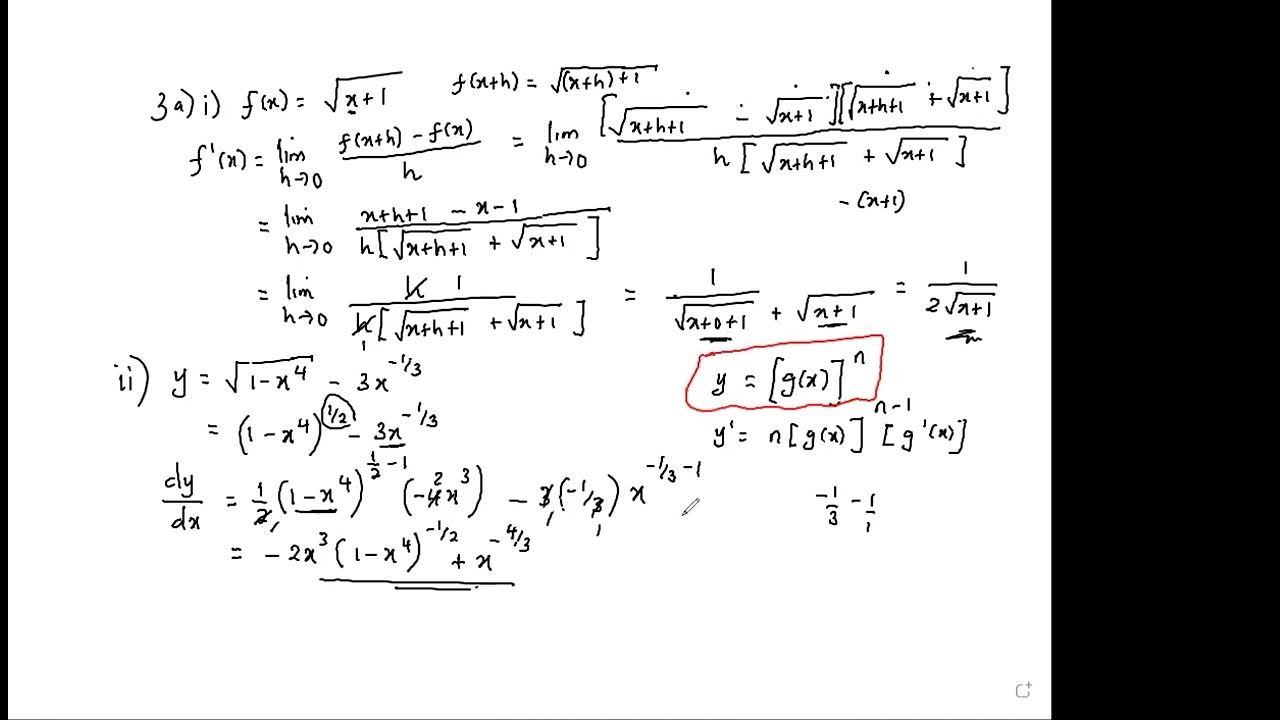 3a) i) f(x) = √(x+1)   f(x+h) = √((x+h)+1)
f'(x) = lim h→0 (f(x+h) - f(x))/h = lim h→0 [√(x+h+1) - √(x+1)][√(x+h+1) + √(x+1)] / h[√(x+h+1) + √(x+1)]
- (x+1)
= lim h→0 (x+h+1 - x-1) / h[√(x+h+1) + √(x+1)]
= lim h→0 h 1 / h 1 [√(x+h+1) + √(x+1)] = 1/(√(x+0+1) + √(x+1)) = 1/(2√(x+1))
ii) y = √(1-x⁴) - 3x^(-1/3)   y = [g(x)]^n
= (1-x⁴)^(1/2) - 3x^(-1/3)   y' = n[g(x)]^(n-1) [g'(x)]
dy/dx = 1/2 (1-x⁴)^(1/2 - 1) (-4 2 x³) - 3 1 (-1/3 1) x^(-1/3 - 1)   -1/3 - 1/1
= -2x³(1-x⁴)^(-1/2) + x^(-4/3)